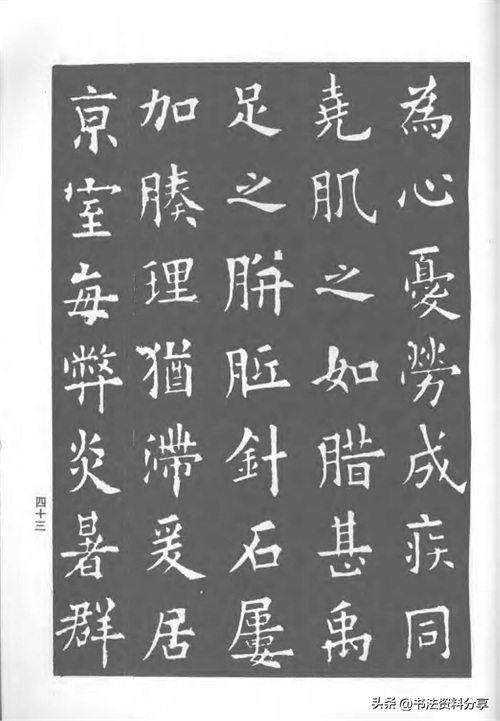 為心憂勞成疾同
堯肌之如腊甚禹
足之胼胝針石屢
加腠理猶滯爰居
京室每弊炎暑群
四十三
头条 @书法资料分享